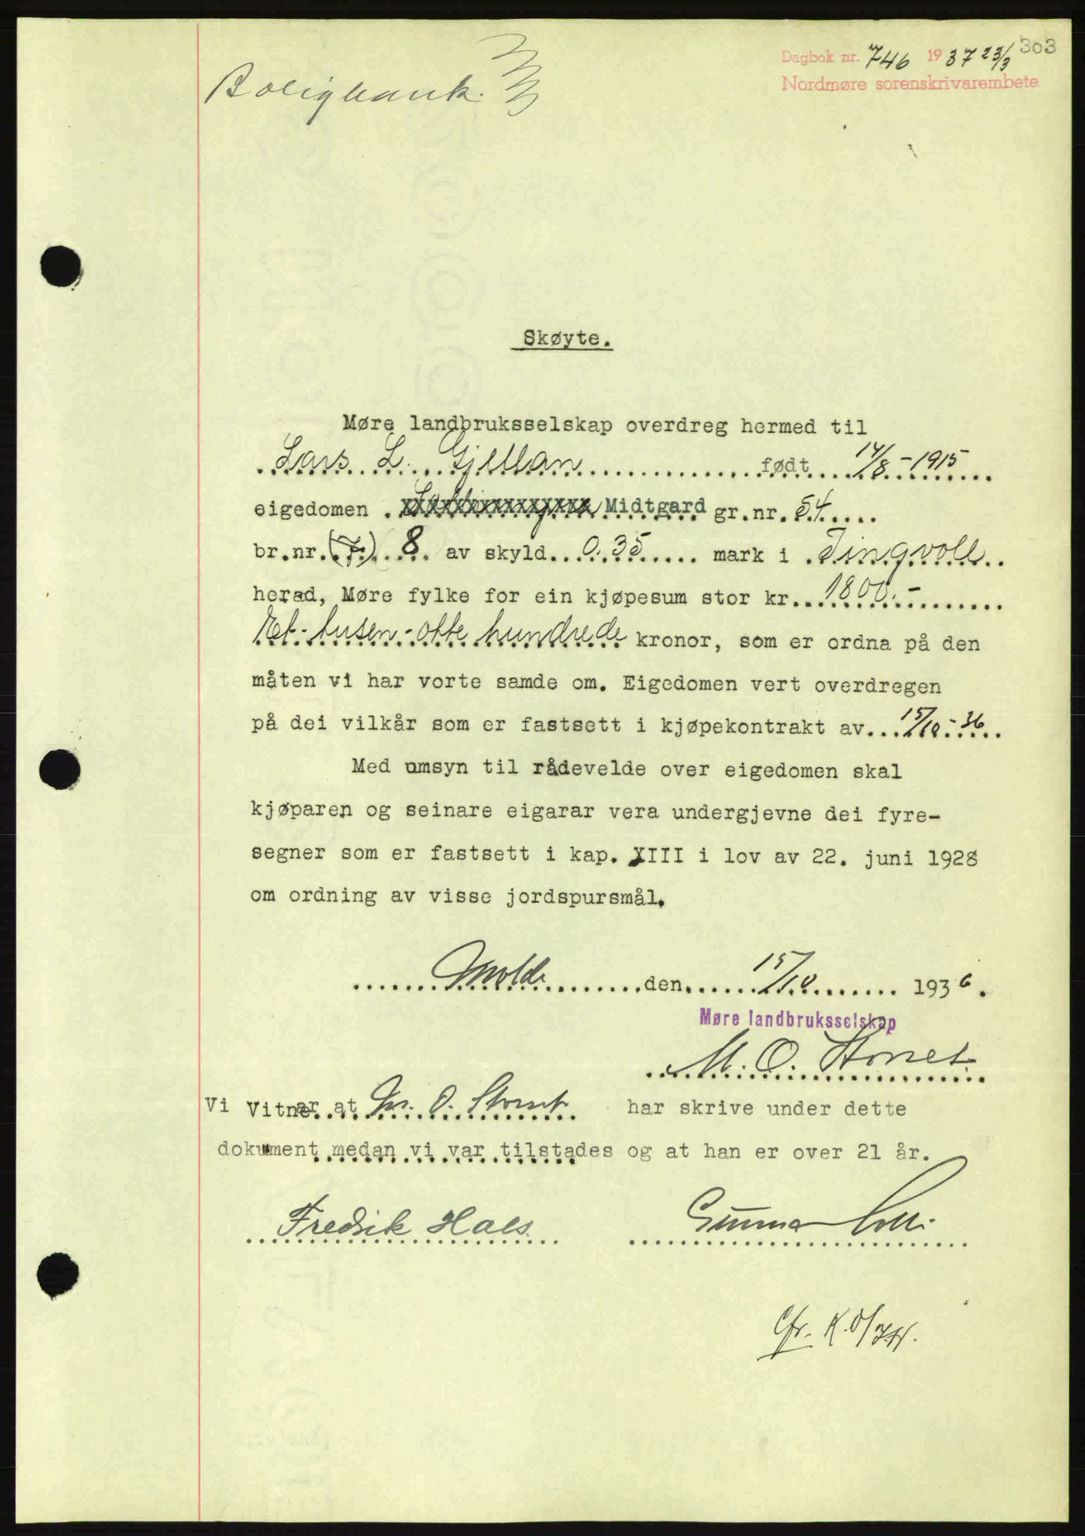 303
Dagbok nr. 746 1937 23/3
Nordmøre sorenskrivarembete
Boligbank.
Skøyte.
Møre landbruksselskap overdreg hermed til
Lars L. Gjellan født 14/8-1915
eigedomen xxxxxxxxxxxxxxx Midtgard gr.nr. 54
br.nr. (7.) 8 av skyld 0.35 mark i Tingvoll
herad, Møre fylke for ein kjøpesum stor kr. 1800.-
Et-tusen-otte hundrede kronor, som er ordna på den
måten vi har vorte samde om. Eigedomen vert overdregen
på dei vilkår som er fastsett i kjøpekontrakt av 15/10-36
Med umsyn til rådevelde over eigedomen skal
kjøparen og seinare eigarar vera undergjevne dei fyre-
segner som er fastsett i kap. XIII i lov av 22. juni 1928
om ordning av visse jordspursmål.
Molde den 15/10 1936.
Møre landbruksselskap
M. O. Storset
Vi Vitnar at M. O. Storset har skrive under dette
dokument medan vi var tilstades og at han er over 21 år.
Fredrik Hals. Gunnar
Cfr. K.